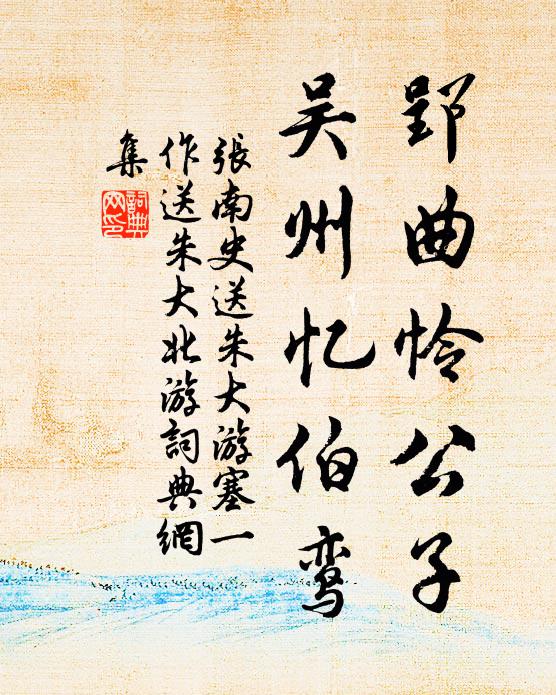 郢曲怜公子
吴州忆伯鸾
張南史送朱大游塞一
作送朱大北游詞典網
集
詞典網印